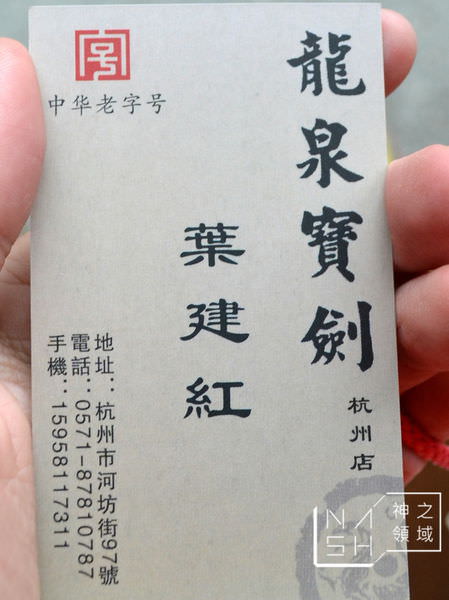 龍泉寶劍
杭州店
葉建紅
字号
中华老字号
地址：杭州市河坊街97號
電話：0571-87810787
手機：15958117311
NASH
神之
領域